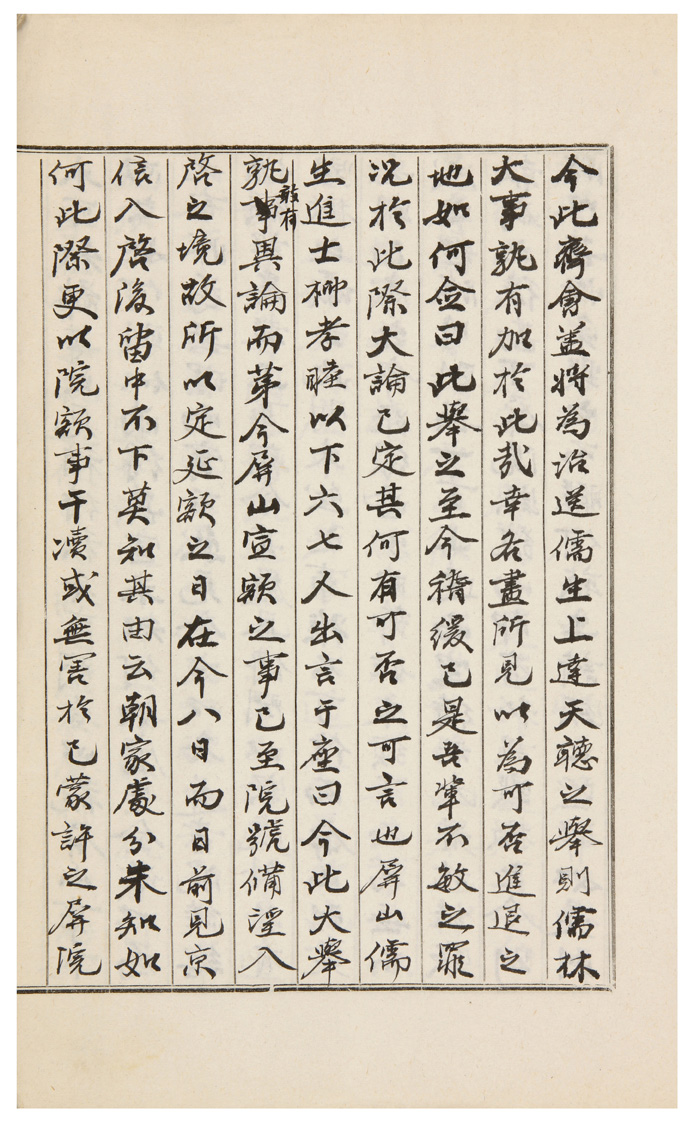 今此齊會盖將為治送儒生上達天聽之舉則儒林
大事孰有加於此哉幸各盡所見以為可否進退之
地如何僉曰此舉之至今稽緩已是吾輩不敏之罪
况於此際大論已定其何有可否之可言也屏山儒
生進士柳孝睦以下六七人出言于座曰今此大舉
孰敢有異論而第今屏山宣額之事已至院號備望入
啓之境故所以定延額之日在今八日而日前見京
信入啓後留中不下莫知其由云朝家處分未知如
何此際更以院額事干瀆或無害於已蒙許之屏院